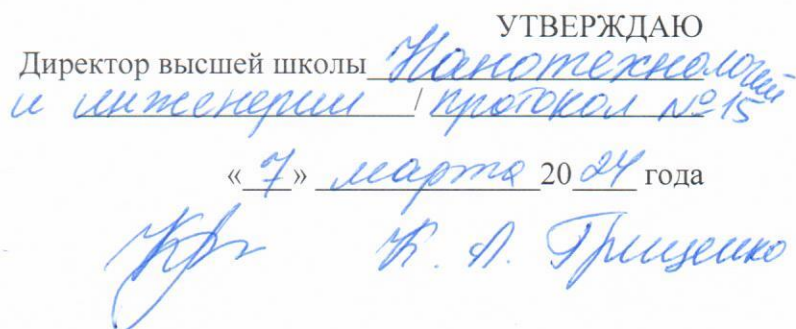 УТВЕРЖДАЮ
Директор высшей школы Нанотехнологий
и инженерии / протокол №15
«7» марта 2024 года
К. А. Грищенко